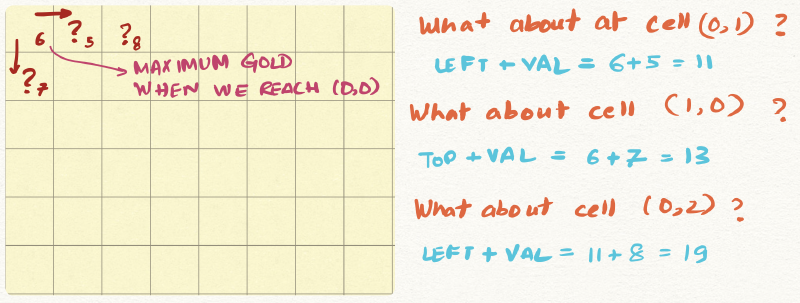 6 ?5 ?8
?7
MAXIMUM GOLD
WHEN WE REACH (0,0)
What about at cell (0,1) ?
LEFT + VAL = 6+5 = 11
What about cell (1,0) ?
TOP + VAL = 6+7 = 13
What about cell (0,2) ?
LEFT + VAL = 11+8 = 19